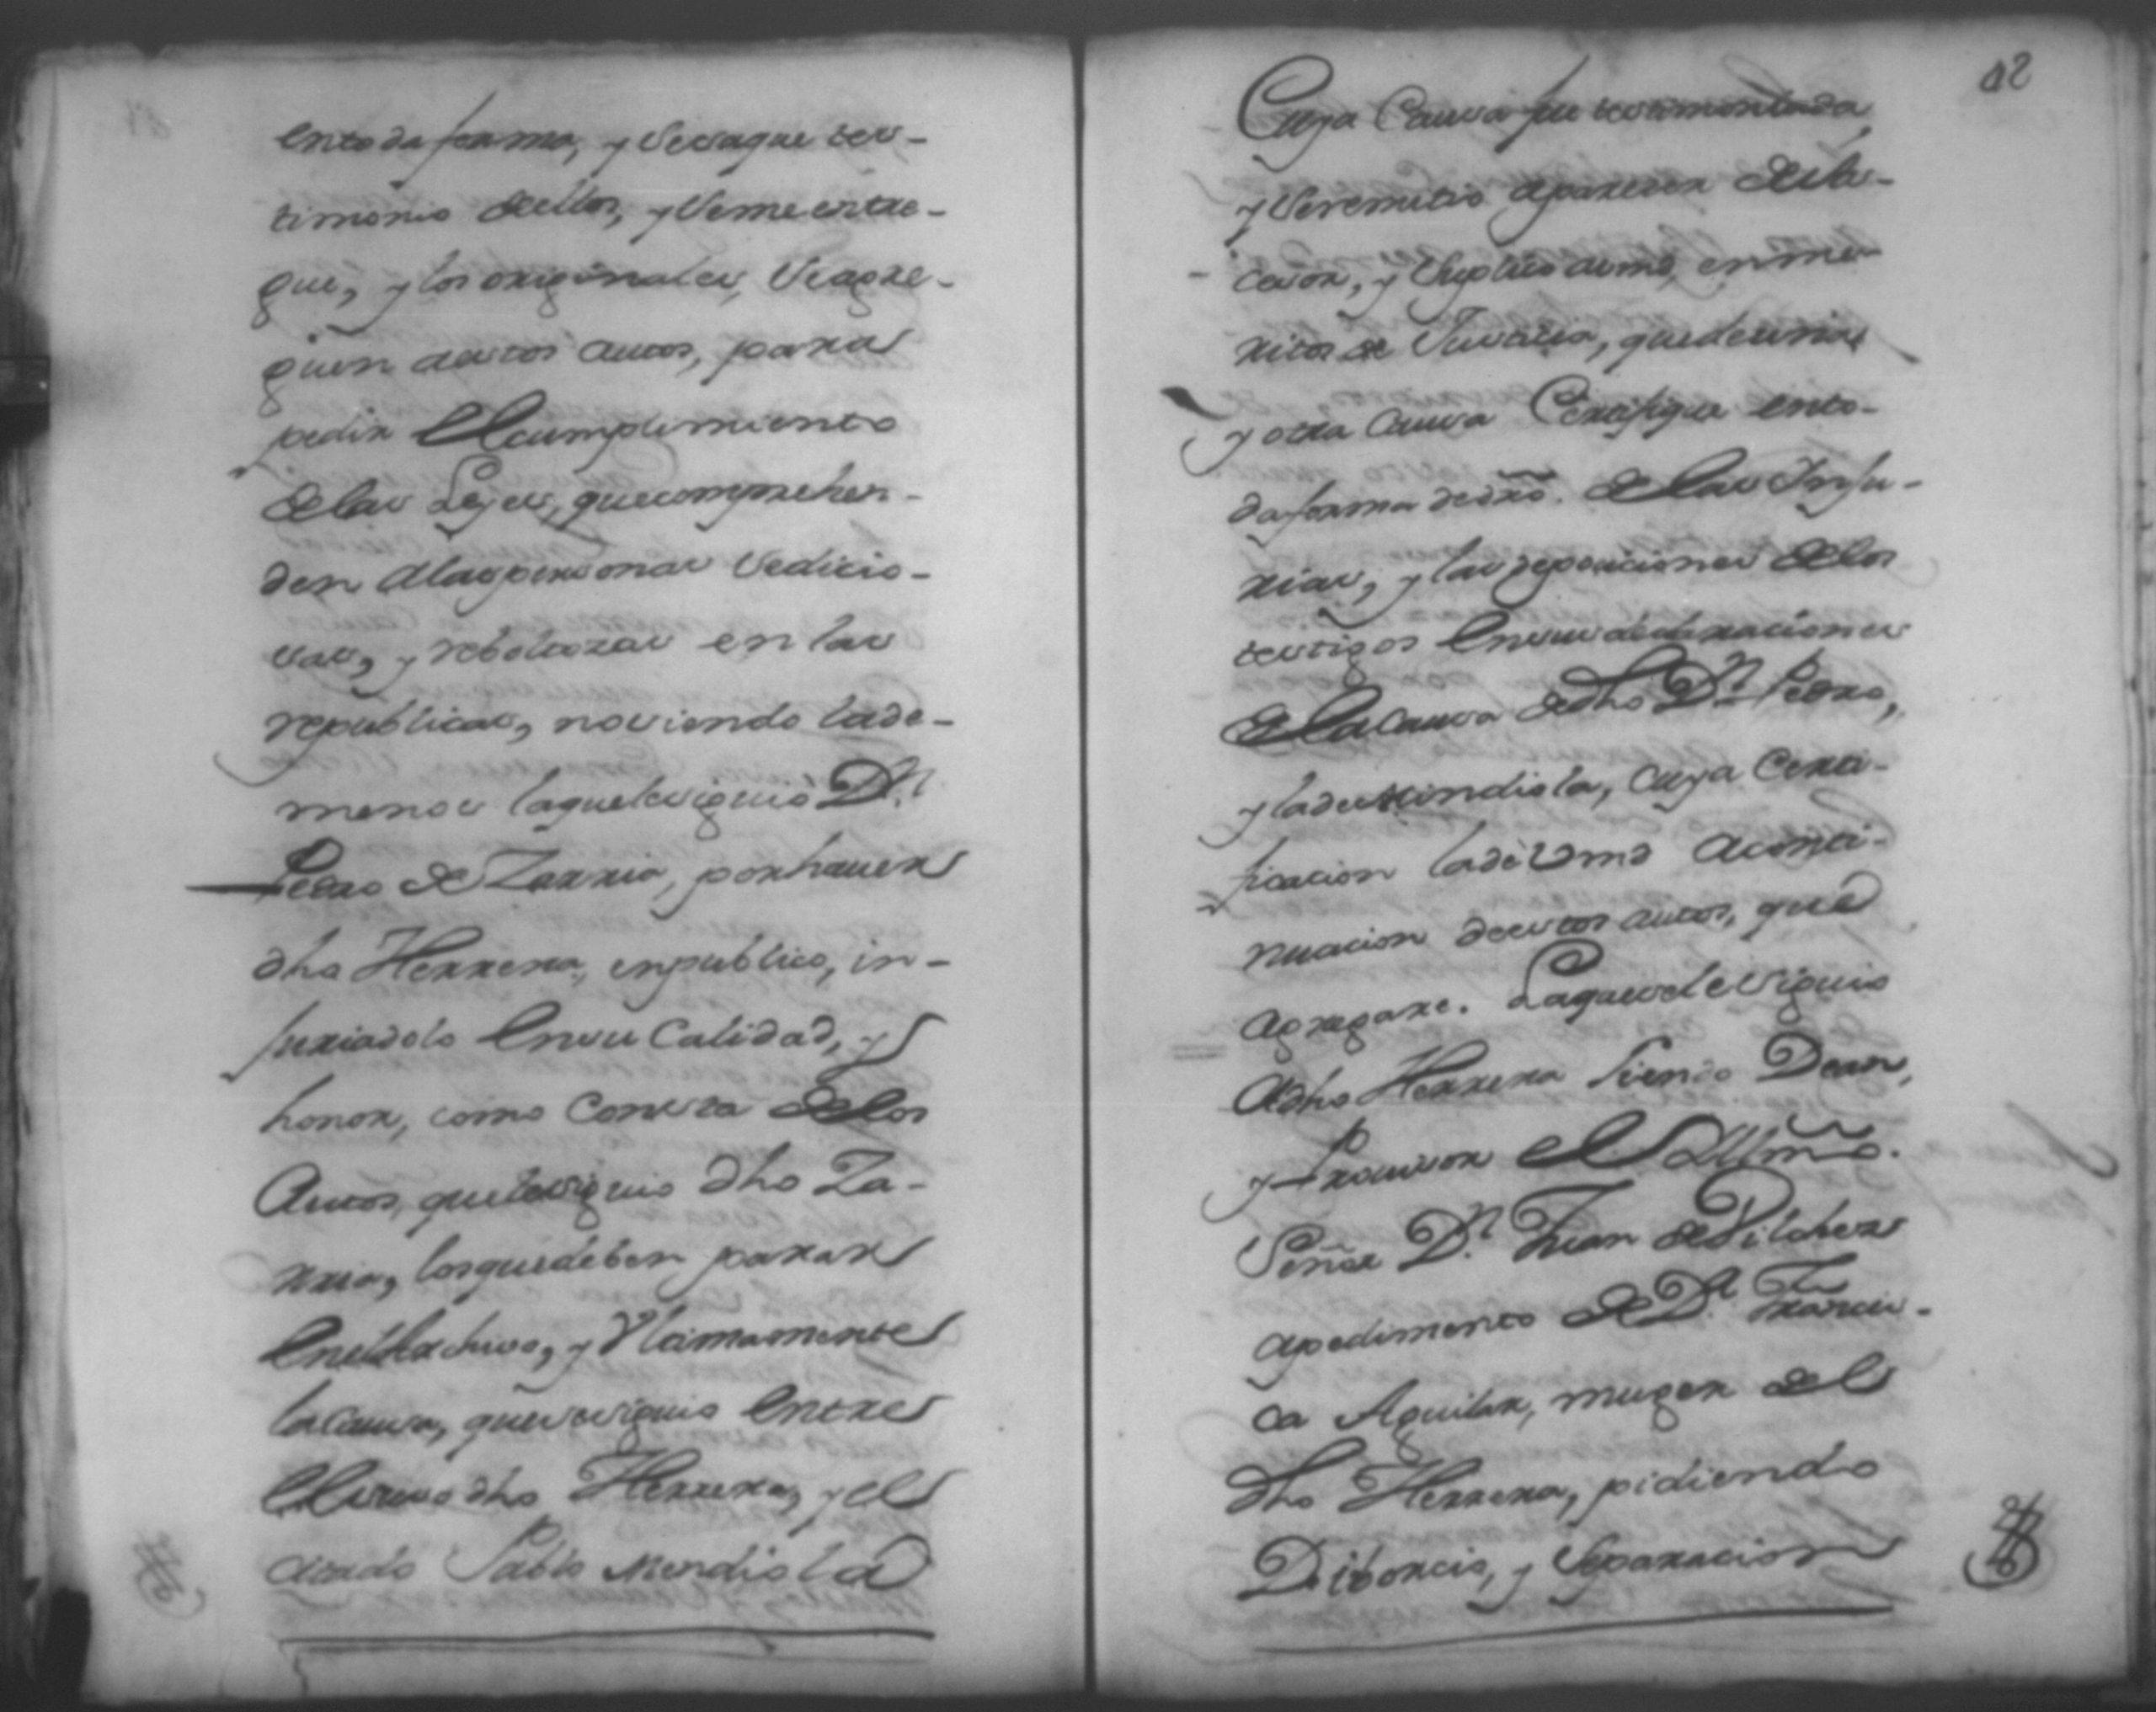 entoda forma, y Sesaque tes-
timonio dellos, y Seme entre-
gue, y los originales, Seagre-
guen aestos autos, para
pedir el cumplimiento
de las Leyes, que comprehen-
den alas personas Sedicio-
sas, y reboltozas en las
republicas, no siendo lade-
menos laquele siguio Dn.
Pedro de Zarria, por haver
dho Herrera, en publico, in-
juriadolo en su Calidad, y
honor, como Consta de los
Autos, quele siguio dho Za-
rria, los que deben parar
en el Archivo, y Ultimamente
la Causa, que se siguio entre
el suso dho Herrera, y el
citado Pablo Mendiola
12
Cuya Causa fue testimoniada,
y Se remitio apareser dela-
cesor, y Suplico aVmd, en me-
ritos de Justicia, que de una,
y otra Causa Certifique ento-
da forma de dro. de las Inju-
rias, y las deposiciones de los
testigos en sus declaraciones
de la Causa de dho Dn. Pedro,
y la de Mendiola, Cuya Certi-
ficacion la dé Vmd aconti-
nuacion de estos autos, que
agregare. La que se le siguio
a dho Herrera Siendo Dean,
y Provisor el Illmo.
Señor Dn. Juan de Vilches
a pedimento de Da. Francis-
ca Aguilar, muger del
dho Herrera, pidiendo
Diborcio, y Separacion